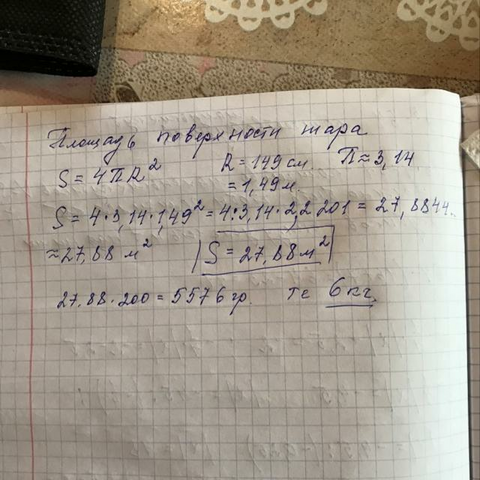 Площадь поверхности шара
S = 4ПR² R = 149 см П ≈ 3,14
= 1,49 м
S = 4·3,14·1,49² = 4·3,14·2,2201 = 27,8844..
≈ 27,88 м² S = 27,88 м²
27,88·200 = 5576 гр. те 6 кг.